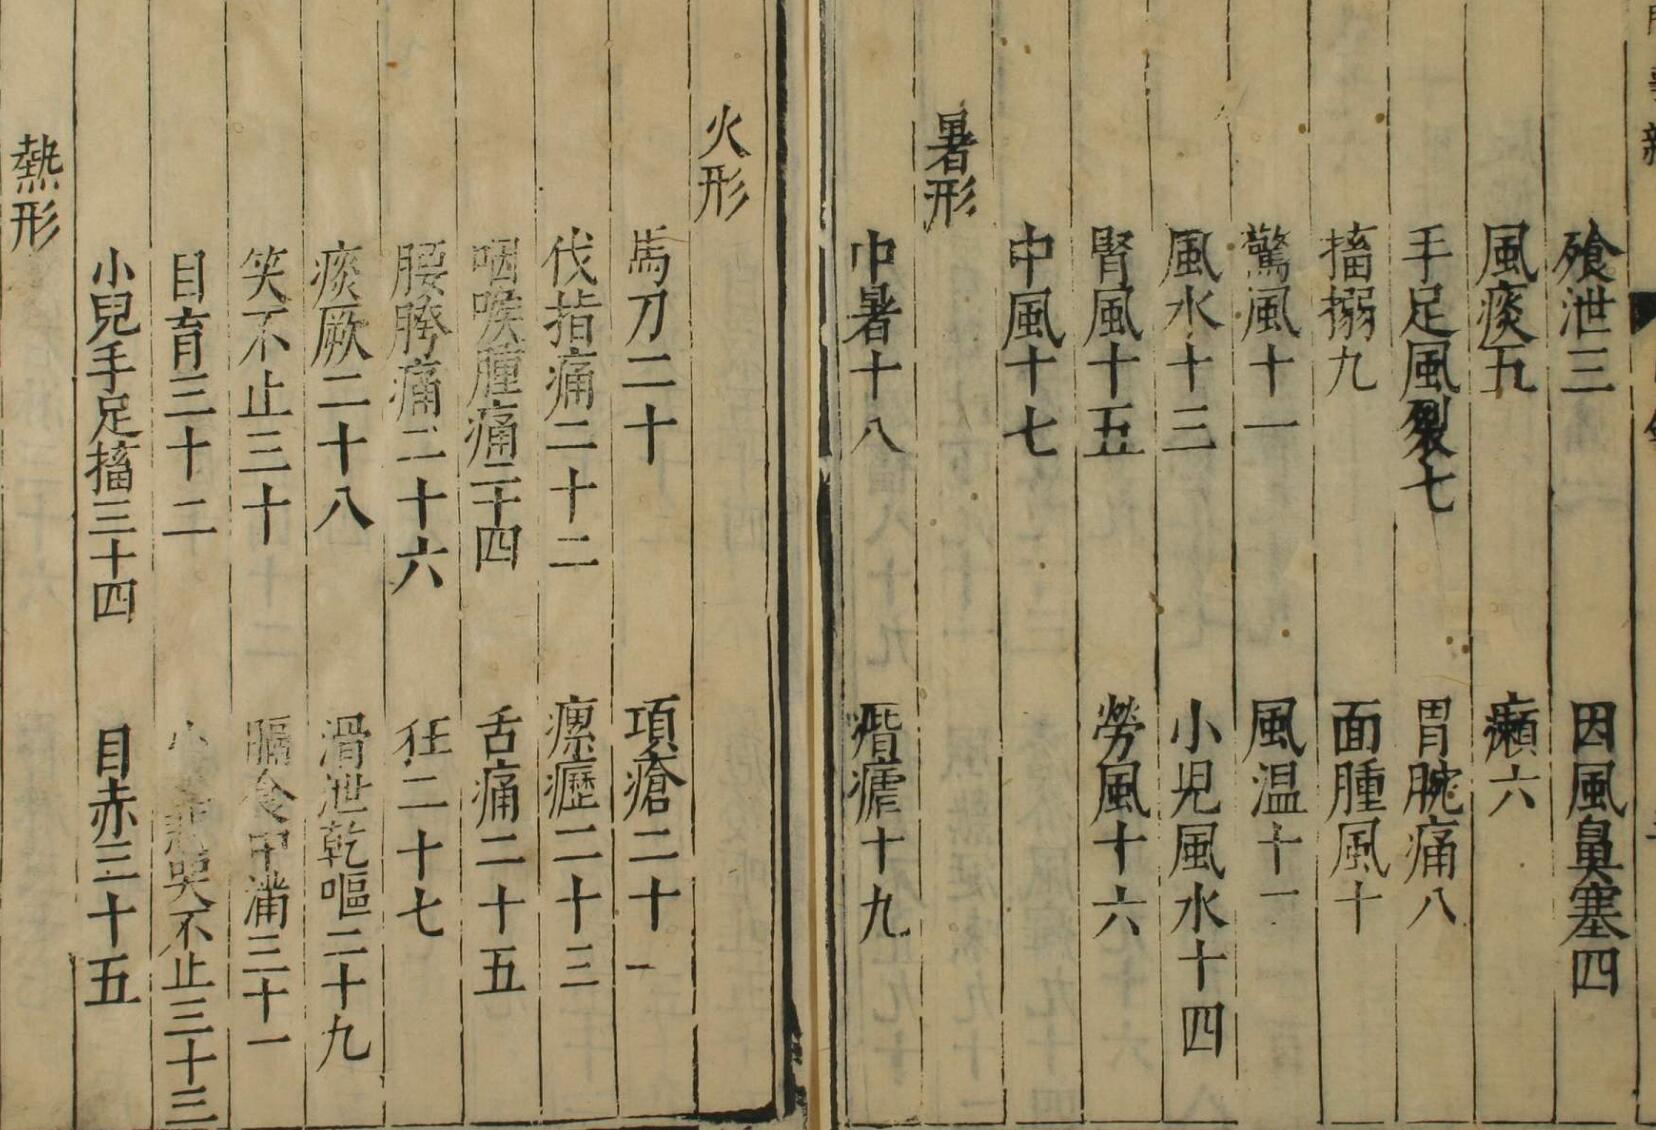 飱泄三 因風鼻塞四
風痰五 癩六
手足風裂七 胃脘痛八
搐搦九 面腫風十
驚風十一 風温十一
風水十三 小児風水十四
腎風十五 勞風十六
中風十七
暑形
中暑十八 痎瘧十九
火形
馬刀二十 項瘡二十一
伐指痛二十二 瘰癧二十三
咽喉腫痛二十四 舌痛二十五
腰胯痛二十六 狂二十七
痰厥二十八 滑泄乾嘔二十九
笑不止三十 膈食中滿三十一
目盲三十二 小 悲哭不止三十三
小兒手足搐三十四 目赤三十五
熱形